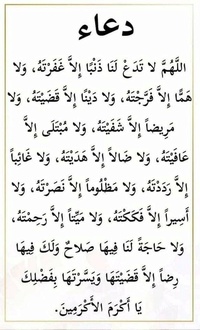 دعاء
اللَّهُمَّ لا تَدَعْ لَنَا ذَنْبًا إِلاَّ غَفَرْتَهُ، وَلا
هَمًّا إِلاَّ فَرَّجْتَهُ، وَلا دَيْنًا إِلاَّ قَضَيْتَهُ، وَلا
مَرِيضاً إِلاَّ شَفَيْتَهُ، وَلا مُبْتَلَى إِلاَّ
عَافَيْتَهُ، وَلا ضَالاً إِلاَّ هَدَيْتَهُ، وَلا غَائِباً
إِلاَّ رَدَدْتَهُ، وَلا مَظْلُوماً إِلاَّ نَصَرْتَهُ، وَلا
أَسِيراً إِلاَّ فَكَكْتَهُ، وَلا مَيِّتاً إِلاَّ رَحِمْتَهُ،
وَلا حَاجَةً لَنَا فِيهَا صَلاحٌ وَلَكَ فِيهَا
رِضاً إِلاَّ قَضَيْتَهَا وَيَسَّرْتَهَا بِفَضْلِكَ
يَا أَكْرَمَ الأَكْرَمِينَ.